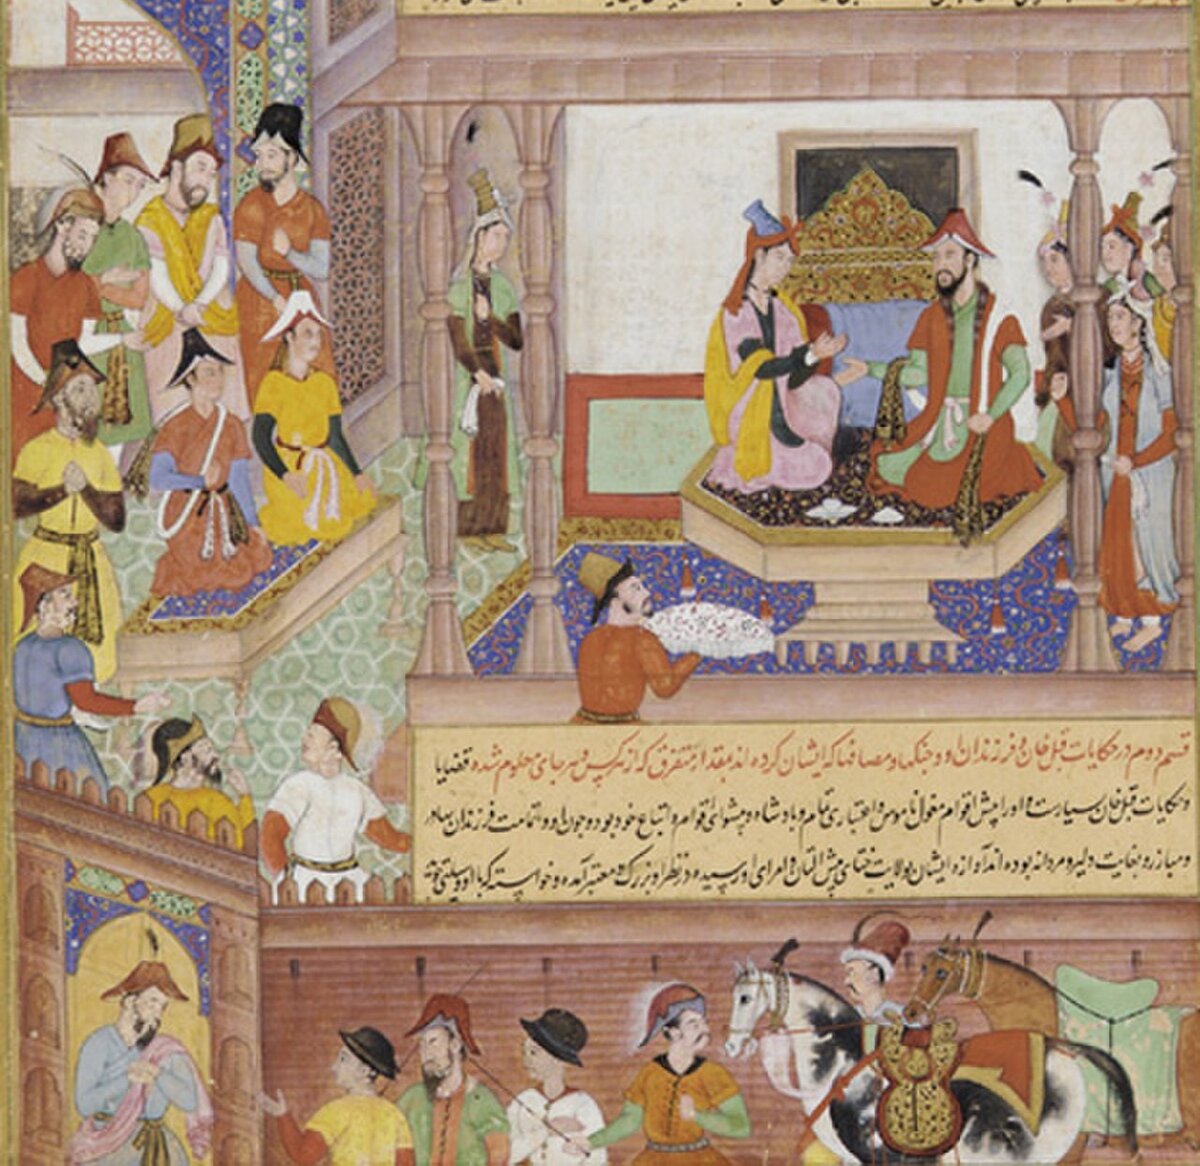 قسم دوم در حکایات قبل خان و فرزندان او و جنکها و مصافها که ایشان کرده اند بمقدار متفرق که از هر کس و هر جای معلوم شده قضایا
و حکایات قبل خان بسیارست و او را پیش اقوام مغول ناموس و اعتباری تمام و پادشاه و پیشوای اقوام و اتباع خود بوده و چون او و تمامت فرزندان بهادر
و مبارز و بغایت دلیر و مردانه بوده اند آوازه ایشان بولایت ختای پیش التان و امرای او رسیده در نظر او بزرک و معتبر آمده و خواسته که با او